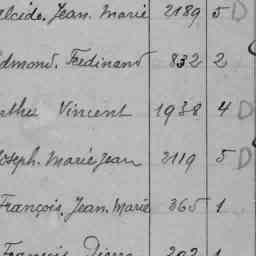 Alcide, Jean. Marie 2189 5 D
Edmond, Ferdinand 832 2
Vincent 1938 4 D
Joseph. Marie Jean 2119 5 D
François. Jean. Marie 365 1
François Pierre 202 1